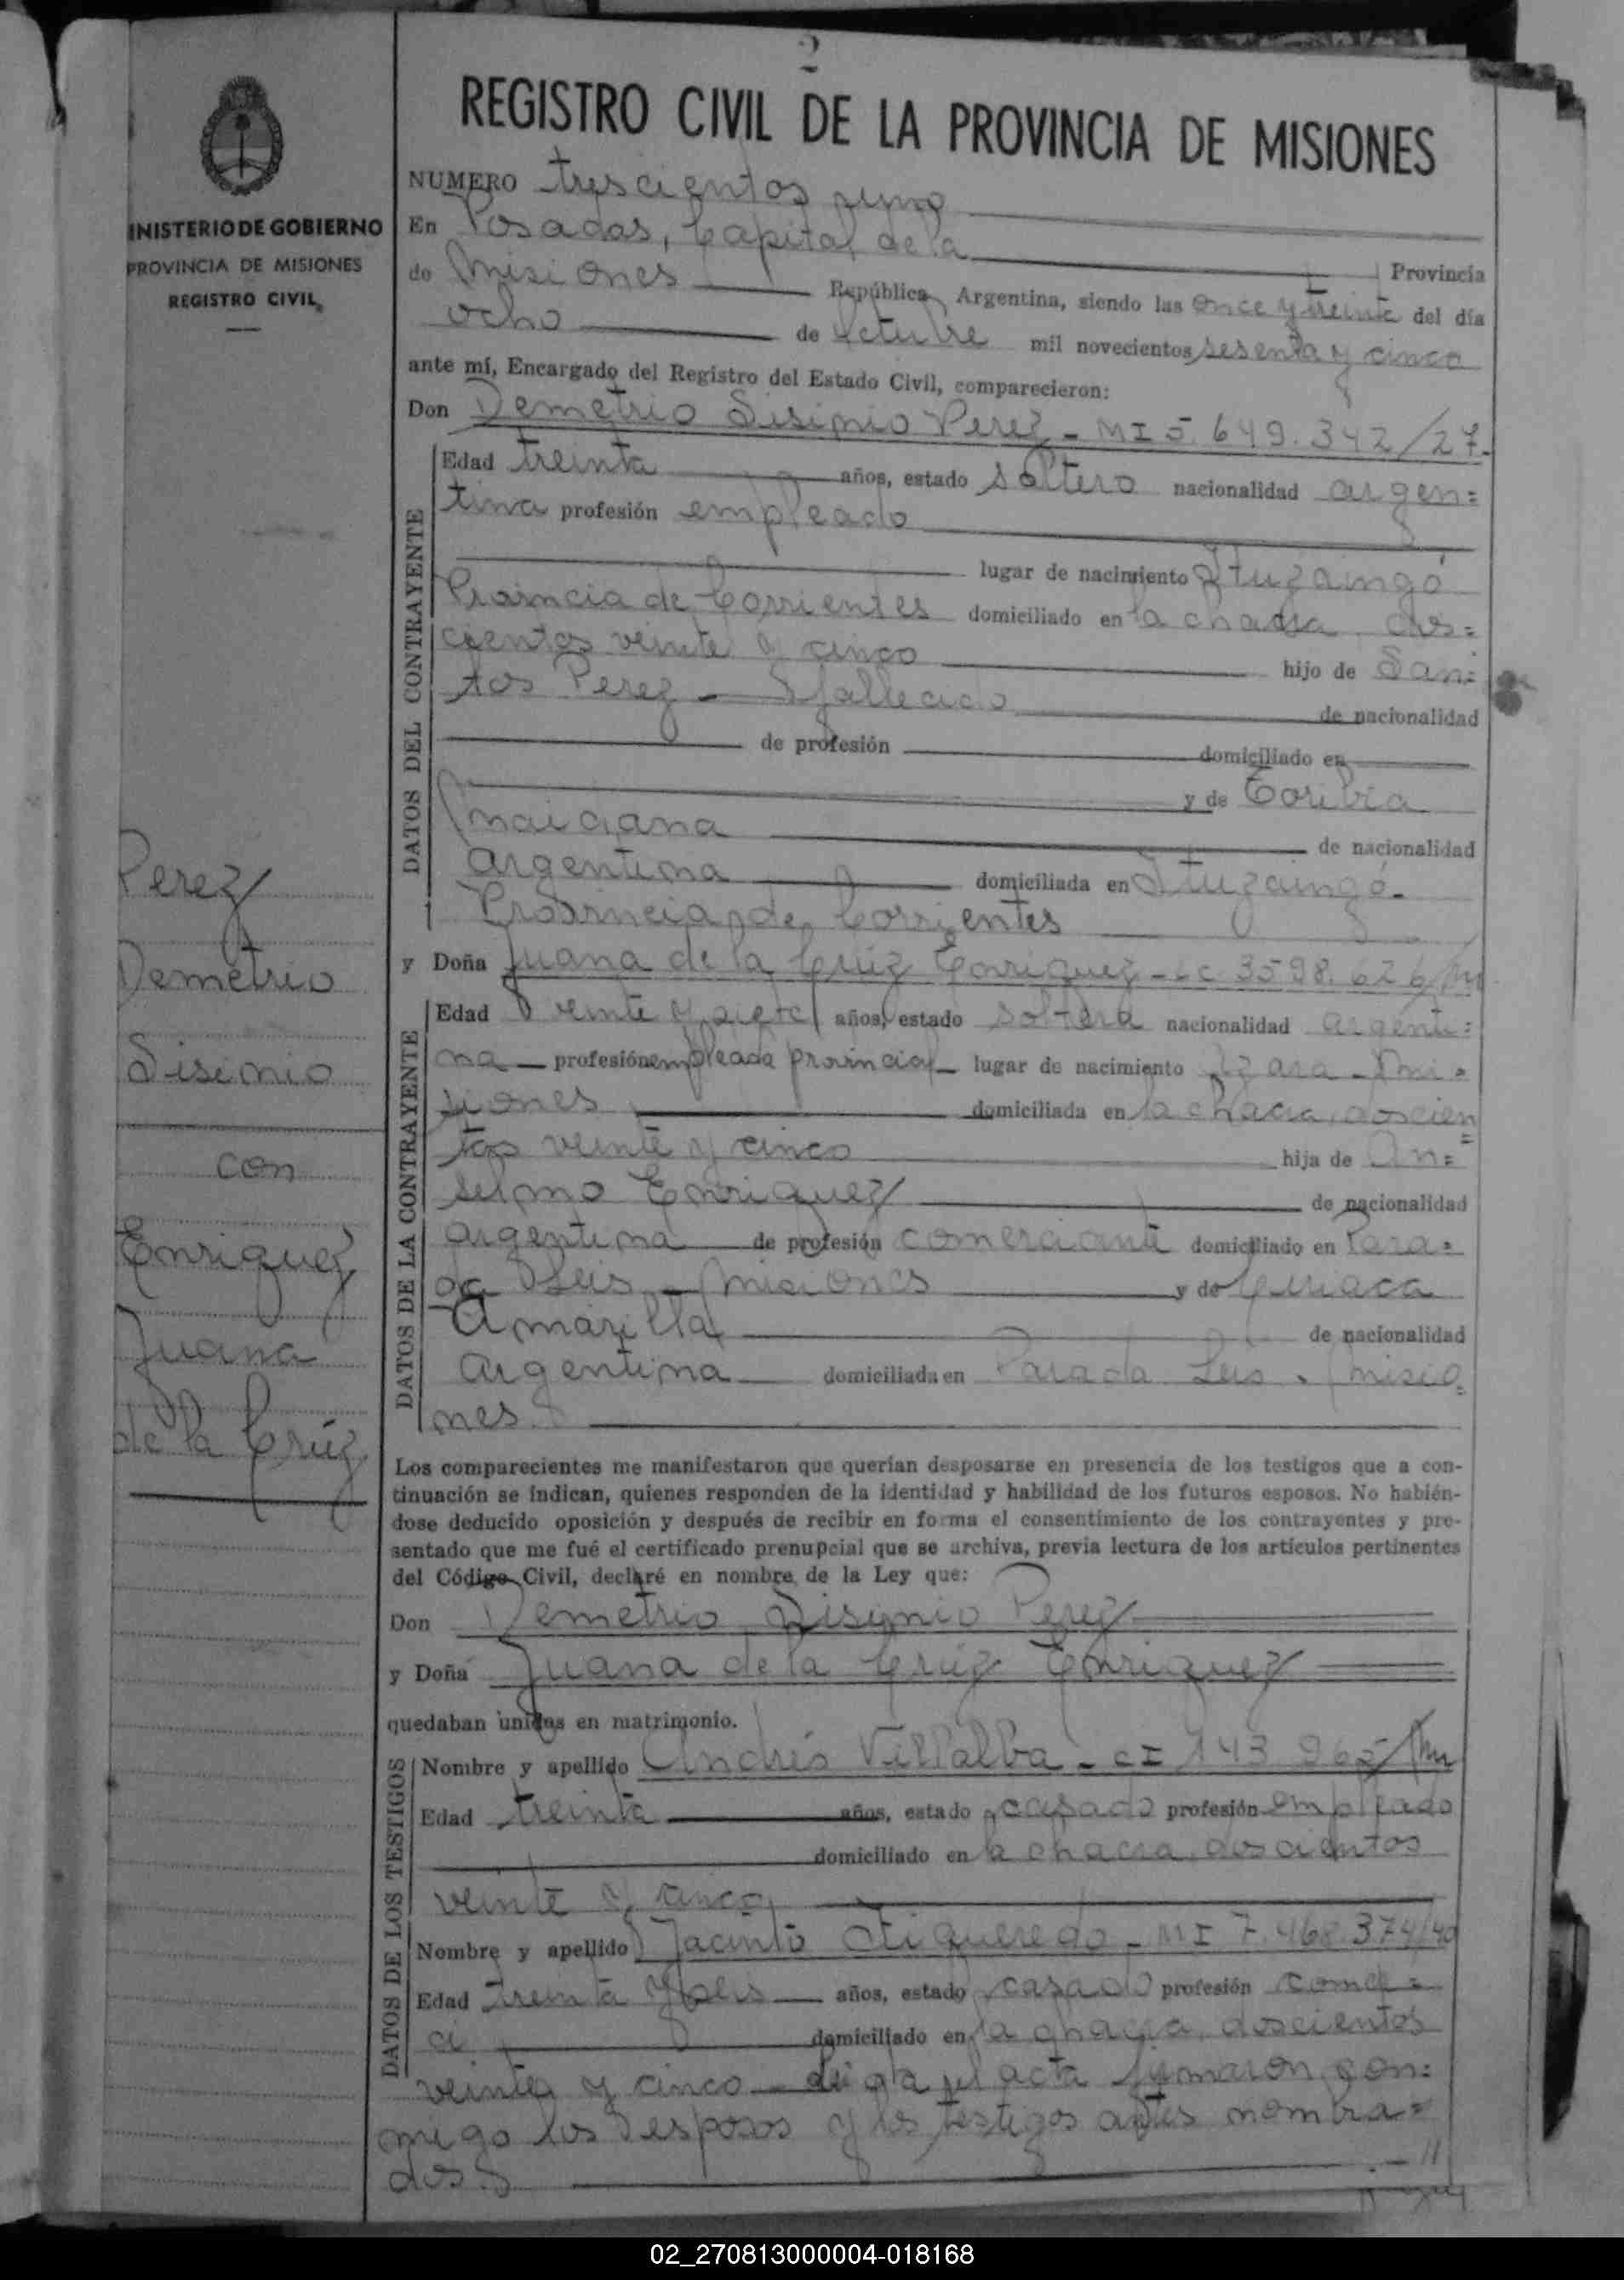 2
REGISTRO CIVIL DE LA PROVINCIA DE MISIONES
INISTERIO DE GOBIERNO
PROVINCIA DE MISIONES
REGISTRO CIVIL
NUMERO trescientos uno
En Posadas, Capital de la Provincia
de Misiones República Argentina, siendo las once y treinta del día
ocho de Octubre mil novecientos sesenta y cinco
ante mí, Encargado del Registro del Estado Civil, comparecieron:
Don Demetrio Sisinio Perez - MI 5.649.342/27-
DATOS DEL CONTRAYENTE
Edad treinta años, estado soltero nacionalidad argen=
tina profesión empleado
lugar de nacimiento Ituzaingó
Provincia de Corrientes domiciliado en la chacra dos=
cientos veinte y cinco hijo de San=
tos Perez - fallecido de nacionalidad
de profesión domiciliado en
y de Toribia
Maidana de nacionalidad
argentina domiciliada en Ituzaingó-
Provincia de Corrientes
y Doña Juana de la Crúz Enriquez - LC 3598.626/M
DATOS DE LA CONTRAYENTE
Edad veinte y siete años, estado soltera nacionalidad argenti=
na profesión empleada provincial lugar de nacimiento Azara - Mi=
siones domiciliada en la chacra doscien=
tos veinte y cinco hija de An=
selmo Enriquez de nacionalidad
argentina de profesión comerciante domiciliado en Para=
da Leis - Misiones y de Ciriaca
Amarilla de nacionalidad
argentina domiciliada en Parada Leis - Misio=
nes
Los comparecientes me manifestaron que querían desposarse en presencia de los testigos que a con-
tinuación se indican, quienes responden de la identidad y habilidad de los futuros esposos. No habién-
dose deducido oposición y después de recibir en forma el consentimiento de los contrayentes y pre-
sentado que me fué el certificado prenupcial que se archiva, previa lectura de los artículos pertinentes
del Código Civil, declaré en nombre de la Ley que:
Don Demetrio Sisinio Perez
y Doña Juana de la Crúz Enriquez
quedaban unidos en matrimonio.
DATOS DE LOS TESTIGOS
Nombre y apellido Andrés Villalba - CI 143 965/M
Edad treinta años, estado casado profesión empleado
domiciliado en la chacra doscientos
veinte y cinco
Nombre y apellido Jacinto Figueredo - MI 7.468.374/40
Edad treinta y seis años, estado casado profesión comer=
ci domiciliado en la chacra doscientos
veinte y cinco - leida el acta firmaron con=
migo los esposos y los testigos antes nombra=
dos
Perez
Demetrio
Sisinio
con
Enriquez
Juana
de la Crúz
02_270813000004-018168